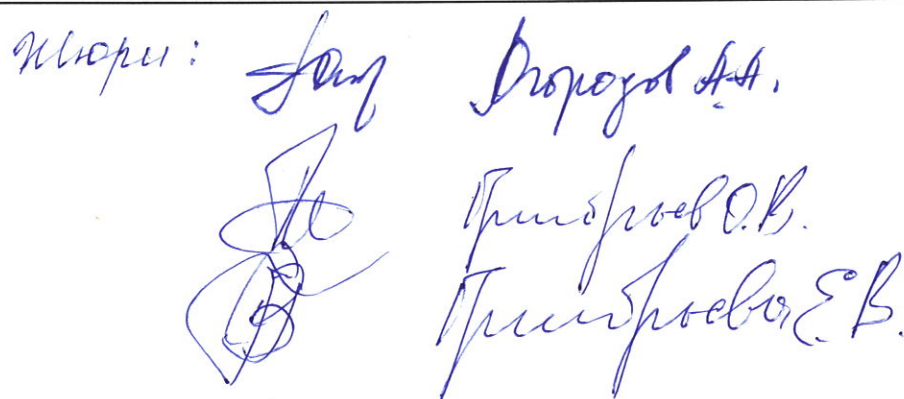 Жюри: Огородов А.А.
Григорьев О.В.
Григорьева Е.В.